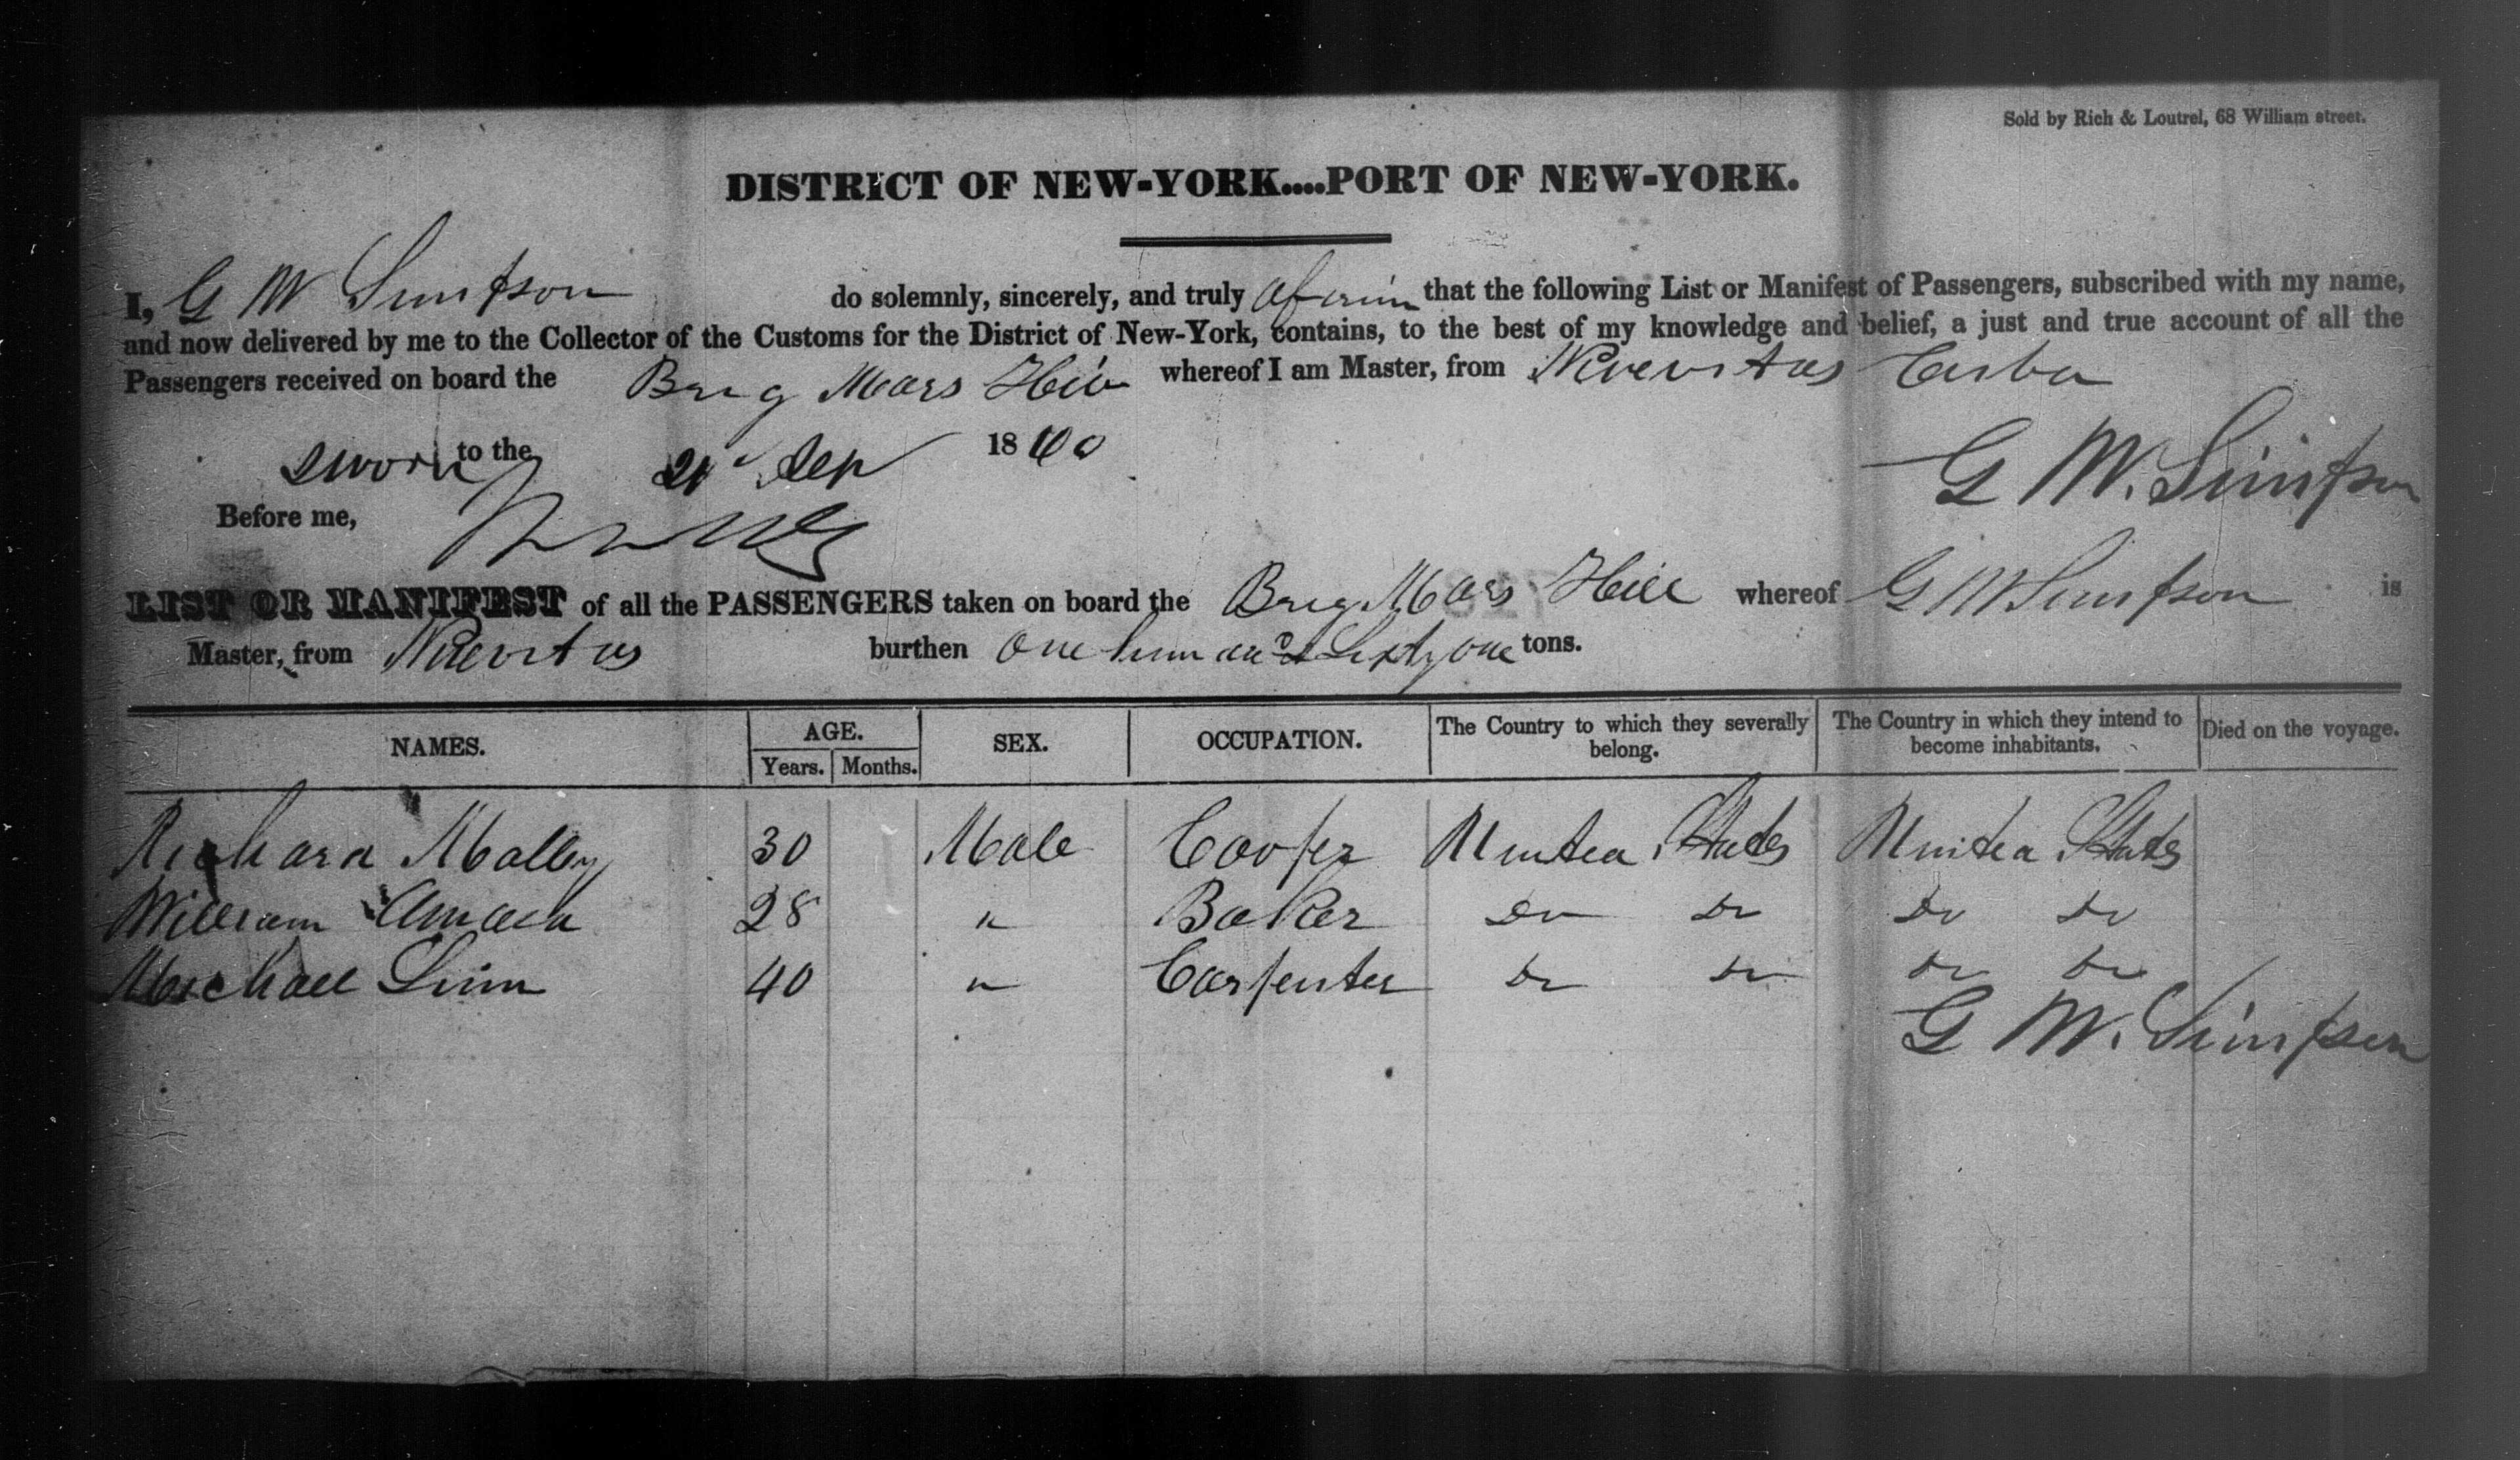 Sold by Rich & Loutrel, 68 William street.
DISTRICT OF NEW-YORK....PORT OF NEW-YORK.
I, G W Simpson do solemnly, sincerely, and truly that the following List or Manifest of Passengers, subscribed with my name,
and now delivered by me to the Collector of the Customs for the District of New-York, contains, to the best of my knowledge and belief, a just and true account of all the
Passengers received on board the Brig Mars Hill whereof I am Master, from Nuevitas Cuba
sworn to the 21 Sep 1860
G W. Simpson
Before me,
LIST OR MANIFEST of all the PASSENGERS taken on board the Brig Mars Hill whereof G W Simpson is
Master, from Nuevitas burthen One hun and Sixty one tons.
NAMES. AGE. SEX. OCCUPATION. The Country to which they severally belong. The Country in which they intend to become inhabitants. Died on the voyage.
Years. Months.
Richard Malley 30 Male Cooper United States United States
William 28 " Baker Do Do Do Do
Michael 40 " Carpenter Do Do Do Do
G W. Simpson